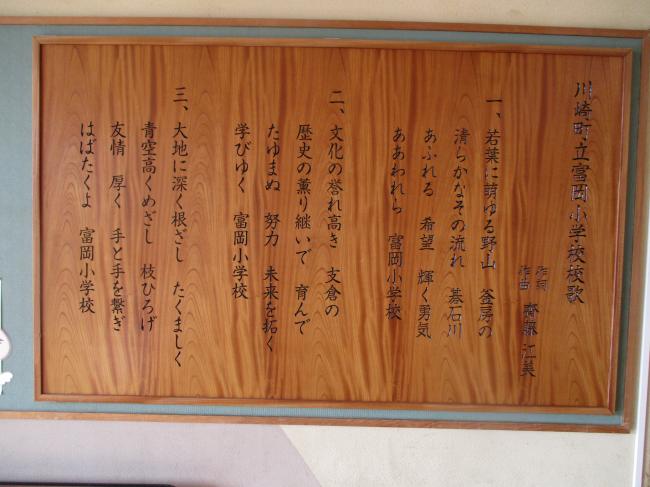 川崎町立富岡小学校校歌
作詞
作曲
齋藤江美
一、若葉に萌ゆる野山　釜房の
清らかなその流れ　碁石川
あふれる　希望　輝く勇気
ああわれら　富岡小学校
二、文化の誉れ高き　支倉の
歴史の薫り継いで　育んで
たゆまぬ　努力　未来を拓く
学びゆく　富岡小学校
三、大地に深く根ざし　たくましく
青空高くめざし　枝ひろげ
友情　厚く　手と手を繋ぎ
はばたくよ　富岡小学校